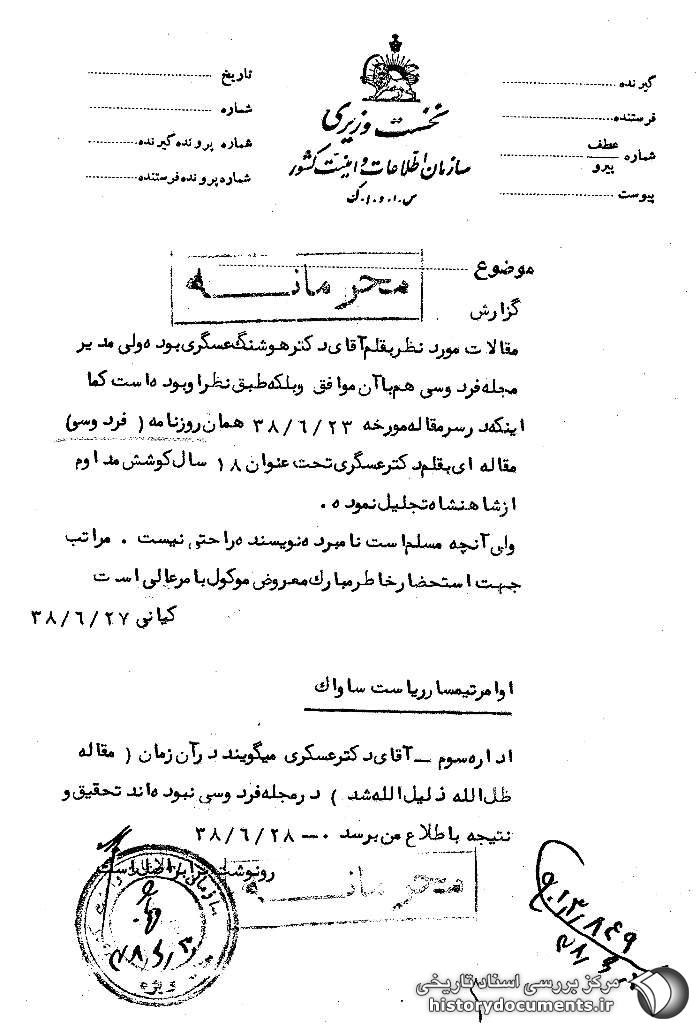 نخست وزیری
سازمان اطلاعات و امنیت کشور
س.ا.و.ا.ك
گیرنده
فرستنده
شماره عطف پیرو
پیوست
تاریخ
شماره
شماره پرونده گیرنده
شماره پرونده فرستنده
موضوع
محرمانه
گزارش
مقالات مورد نظر بقلم آقای دکتر هوشنگ عسگری بوده ولی مدیر
مجله فردوسی هم با آن موافق وبلکه طبق نظر او بوده است کما
اینکه در سرمقاله مورخه ۳۸/۶/۲۳ همان روزنامه ( فردوسی)
مقاله ای بقلم دکتر عسگری تحت عنوان ۱۸ سال کوشش مداوم
از شاهنشاه تجلیل نموده .
ولی آنچه مسلم است نامبرده نویسنده راحتی نیست . مراتب
جهت استحضار خاطر مبارك معروض موکول بامر عالی است
کیانی ۳۸/۶/۲۷
اوامر تیمسار ریاست ساواك
اداره سوم ـ آقای دکتر عسکری میگویند در آن زمان ( مقاله
ظل الله ذلیل الله شد ) در مجله فردوسی نبوده اند تحقیق و
نتیجه باطلاع من برسد ۰ـ ۳۸/۶/۲۸
رونوشت برابر اصل است
محرمانه
ویژه
مرکز بررسی اسناد تاریخی
historydocuments.ir